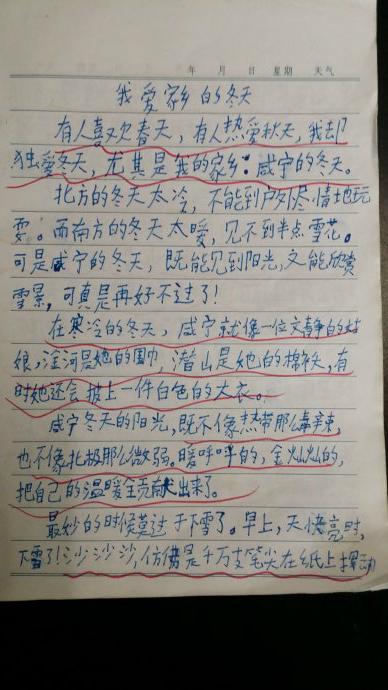 年 月 日 星期 天气
我爱家乡的冬天
有人喜欢春天，有人热爱秋天，我却
独爱冬天，尤其是我的家乡：咸宁的冬天。
北方的冬天太冷，不能到户外尽情地玩
耍。而南方的冬天太暖，见不到半点雪花。
可是咸宁的冬天，既能见到阳光，又能欣赏
雪景，可真是再好不过了！
在寒冷的冬天，咸宁就像一位文静的姑
娘，淦河是她的围巾，潜山是她的棉袄，有
时她还会披上一件白色的大衣。
咸宁冬天的阳光，既不像热带那么毒辣，
也不像北极那么微弱。暖呼呼的，金灿灿的，
把自己的温暖全贡献出来了。
最妙的时候莫过于下雪了。早上，天快亮时，
下雪了！沙沙沙，仿佛是千万支笔尖在纸上挥动